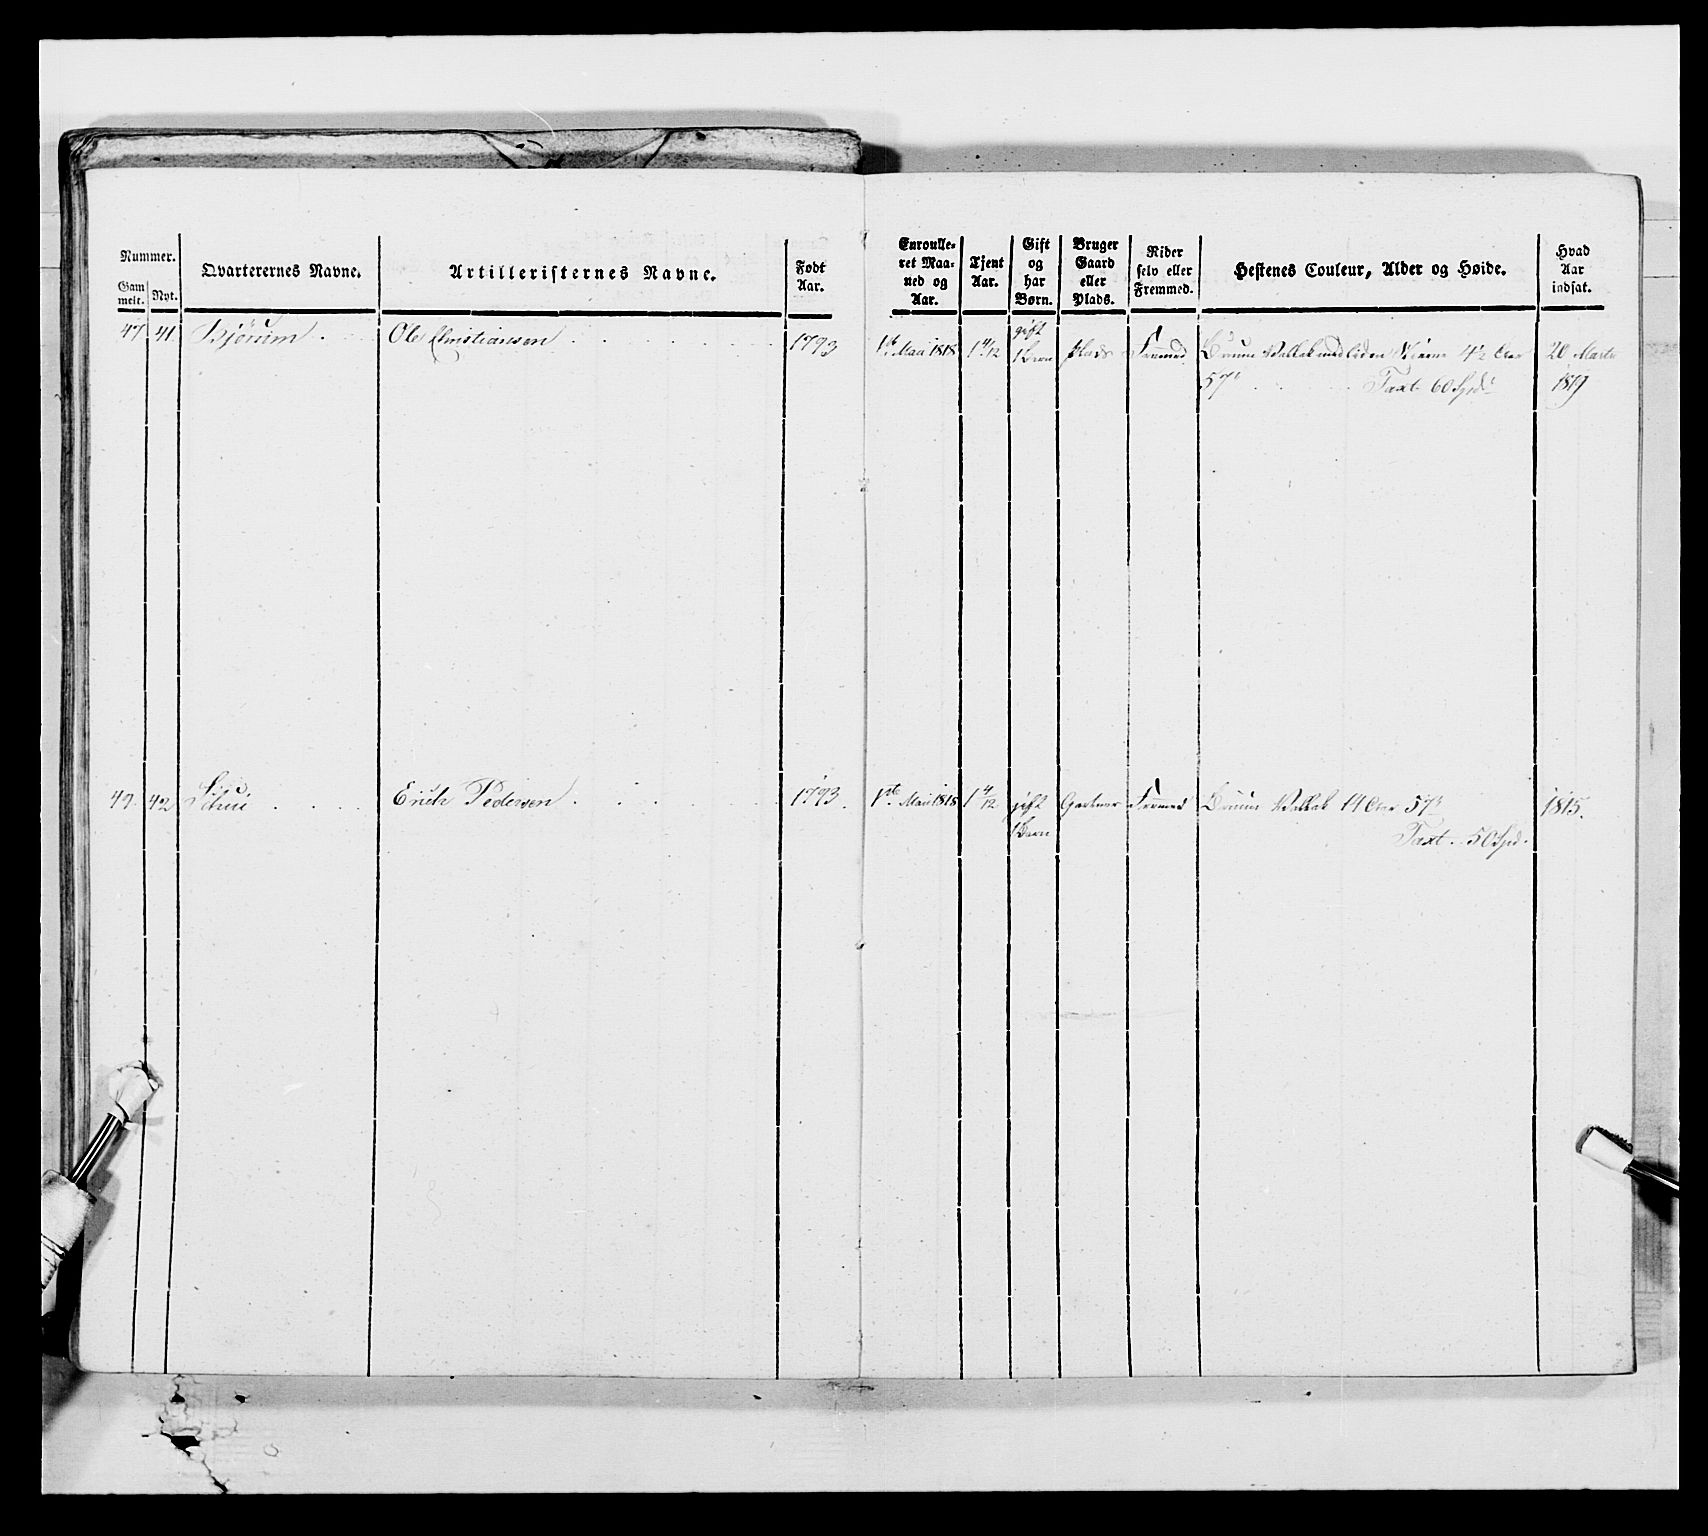 Nummer.
Gam melt.
Nyt.
Qvarterernes Navne.
Artilleristernes Navne.
Født Aar.
Enroulle-
ret Maa-
ned og
Aar.
Tjent Aar.
Gift
og
har
Børn.
Bruger
Gaard
eller
Plads.
Rider
selv eller
Fremmed.
Hestenes Couleur, Alder og Høide.
Hvad
Aar
indsat.
47 41. Bjørum . Ole Christiansen . . . . 1793 1ste Maii 1818 1 4/12 gift 1 Barn plads Fremmed Bruun Vallak med liden Stierne 4½ Aar 20 Marts
57" . . . Taxt 60 Spd 1819
49. 42 Schui . . . . Erich Pedersen . . . . 1793. 1ste Maii 1818 1 4/12 gift 1 Barn Gartner Fremmed Bruun Vallak 14 Aar 57" 1815.
Taxt. 50 Spd.